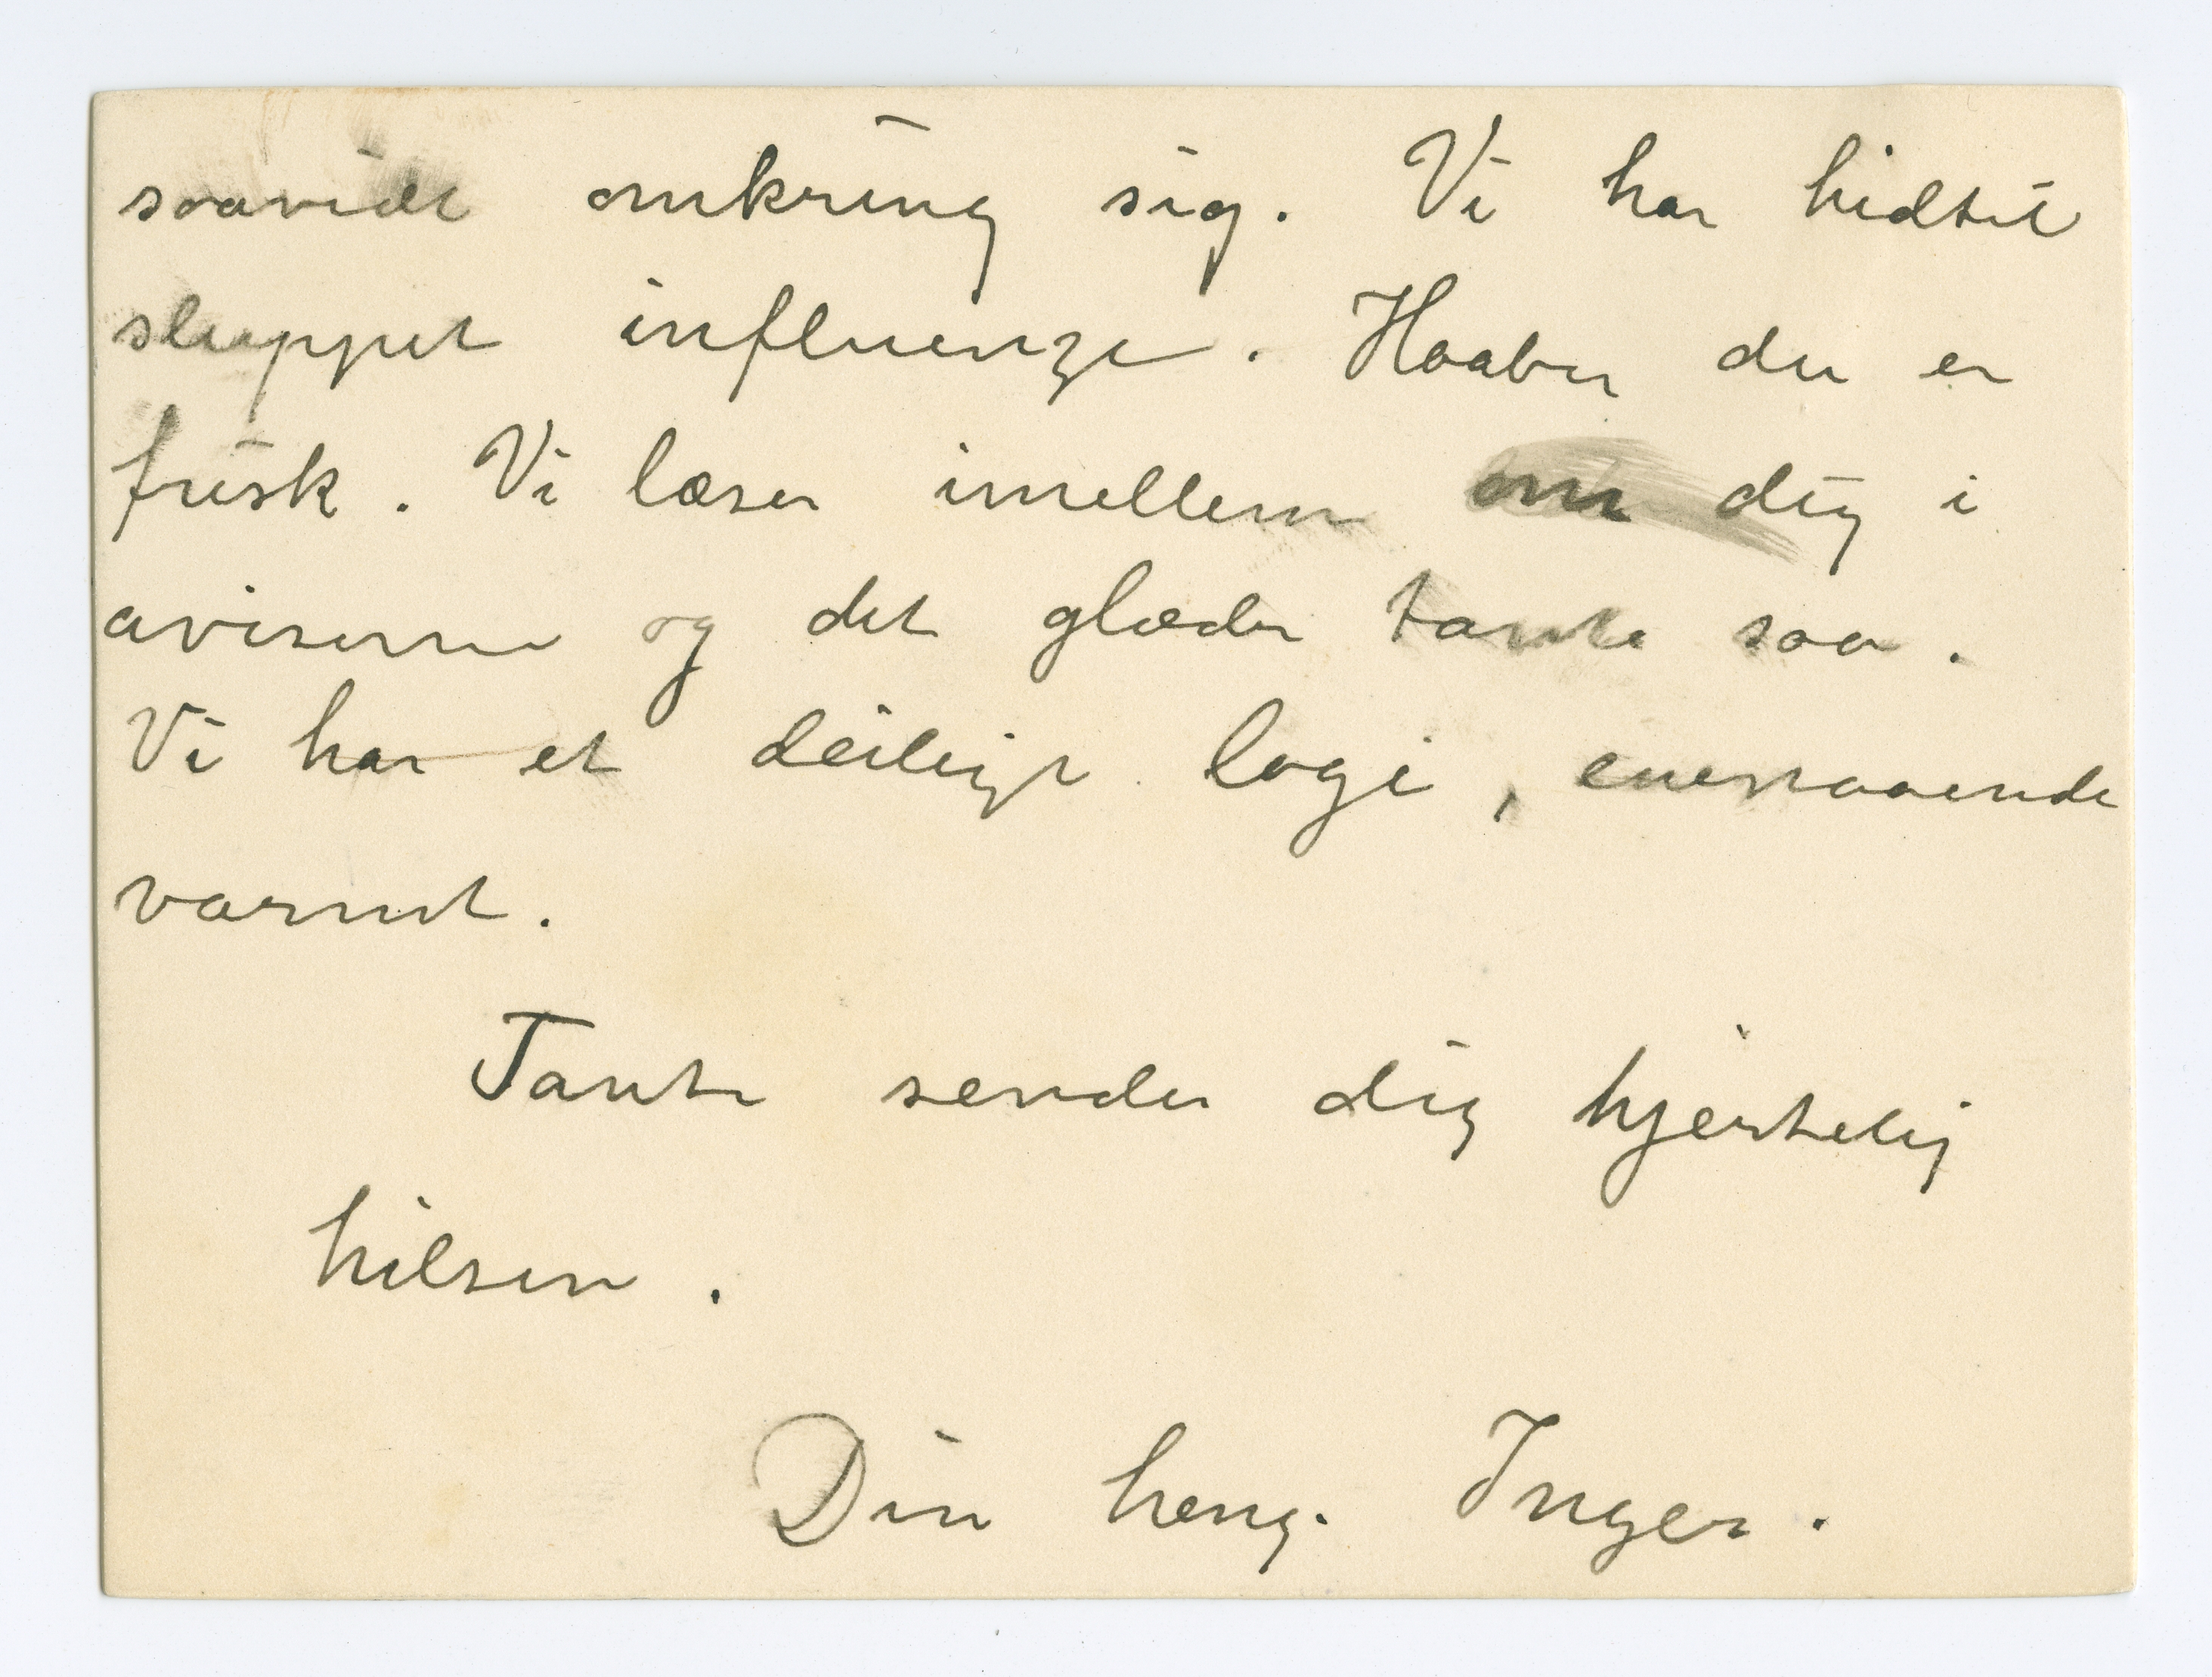 saavidt omkring sig. Vi har hidtil
sluppet influenze. Haaber du er
frisk. Vi læser imellem om dig i
aviserne og det glæder tante saa.
Vi har et deiligt logi, enestaaende
varmt.
Tante sender dig hjertelig
hilsen.
Din heng. Inger.